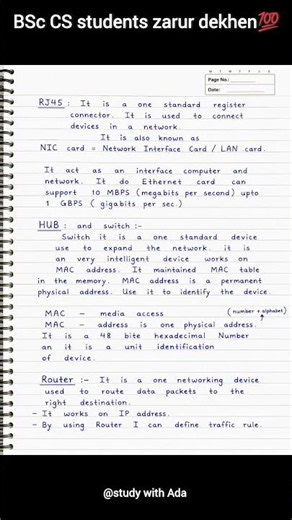 BSc CS students zarur dekhen💯
M T W T F S S
Page No.:
Date:
RJ45 : It is a one standard register
connector. It is used to connect
devices in a network.
It is also known as
NIC card = Network Interface Card / LAN card.
It act as an interface computer and
network. It do Ethernet card can
support 10 MBPS (megabits per second) upto
1 GBPS ( gigabits per sec.)
HUB : and switch :-
Switch it is a one standard device
use to expand the network. it is
an very intelligent device works on
MAC address. It maintained MAC table
in the memory. MAC address is a permanent
physical address. Use it to identify the device.
MAC – media access (number + alphabet)
MAC – address is one physical address.
It is a 48 bite hexadecimal Number
an it is a unit identification
of device.
Router :- It is a one networking device
used to route data packets to the
right destination.
- It works on IP address.
- By using Router I can define traffic rule.
@study with Ada